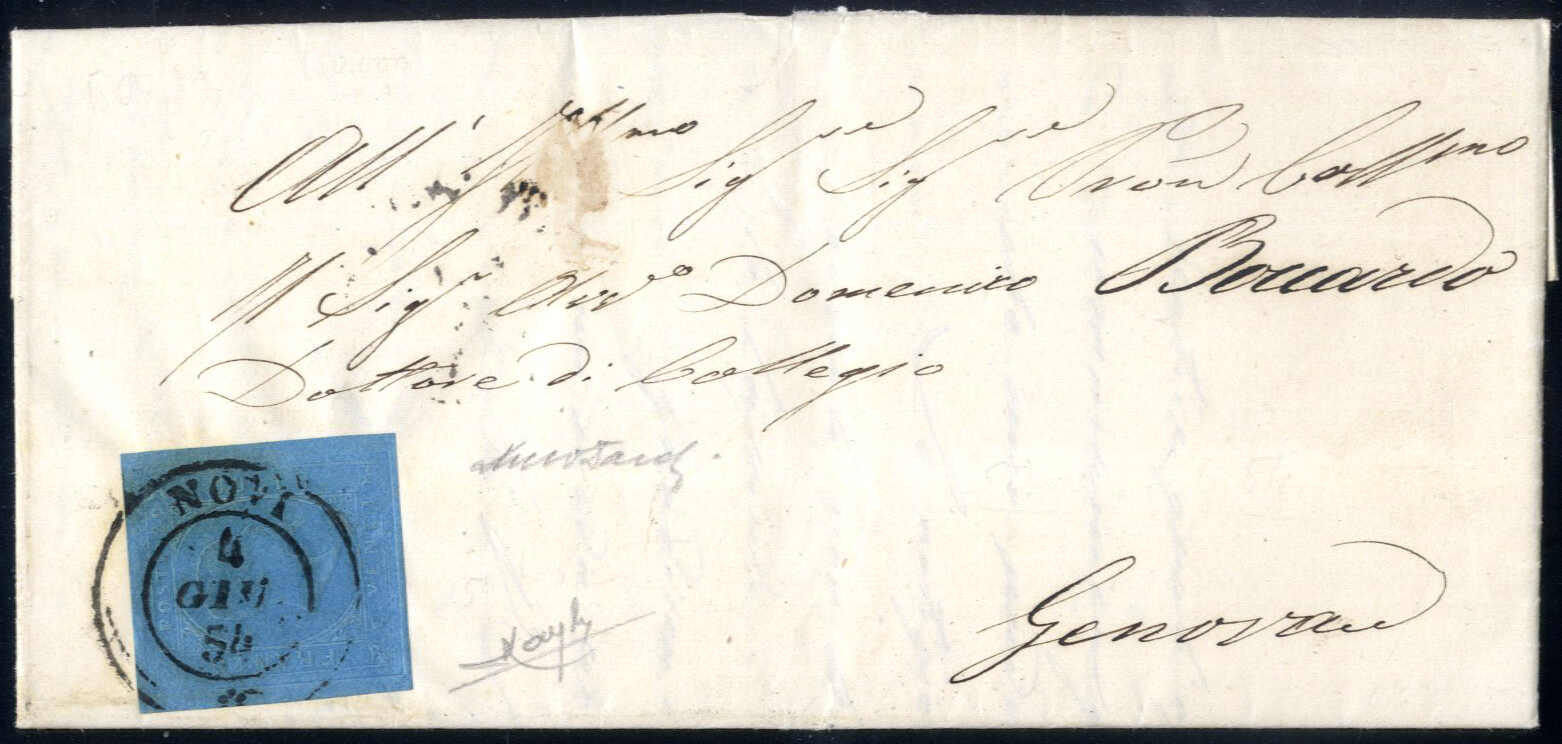 All' Ill.mo Sig.re Sig.re Pron Coll.mo
Il Sig.r Avv.o Domenico Boccardo
Dottore di Collegio
Genova
NOVI
4
GIU
54